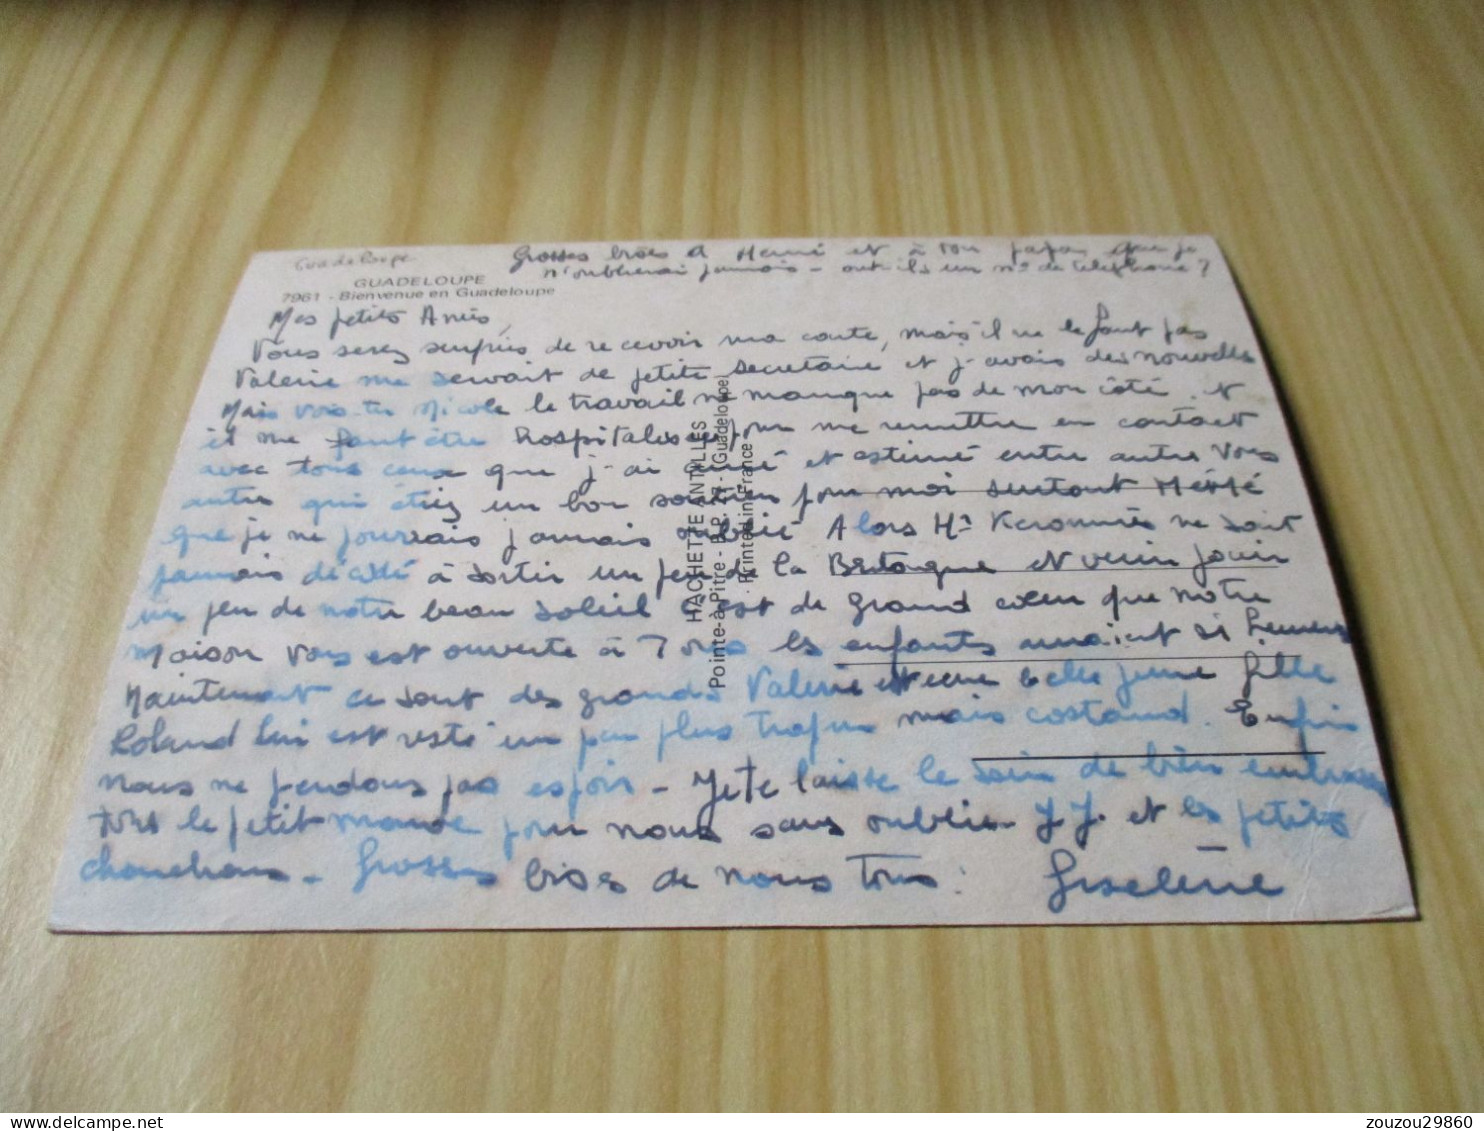 Guadeloupe
Grosses bises a Hervé et à ton papa que je
n'oublierai jamais - ont ils un n° de telephone ?
GUADELOUPE
7961 - Bienvenue en Guadeloupe
Mes petits Amis,
Vous serez surpris de recevoir ma carte, mais il ne le faut pas
Valerie me servait de petite secretaire et j'avais des nouvelles
Mais vois-tu Nicole le travail ne manque pas de mon côté et
il me faut être hospitalisée pour me remettre en contact
avec tous ceux que j'ai aimé et estimé entre autre vous
autre qui étiez un bon soutien pour moi surtout Hervé
que je ne pourrais jamais oublié Alors Mr ne soit
jamais décidé à sortir un peu de la Bretagne et venir jouir
un peu de notre beau soleil c'est de grand coeur que notre
Maison vous est ouverte à Tous les enfants unaient si heureux
Maintenant ce sont des grands Valerie est une belle jeune fille
Roland lui est resté un peu plus trapu mais costaud. Enfin
nous ne perdons pas espoir - Je te laisse le soin de bien embrasser
tous le petit monde pour nous sans oublier J.J. et les petits
chouchous - Grosses bises de nous tous. Giselène
HACHETTE ANTILLES
Pointe-à-Pitre - B.P. 27 - (Guadeloupe)
Printed in France
zouzou29860